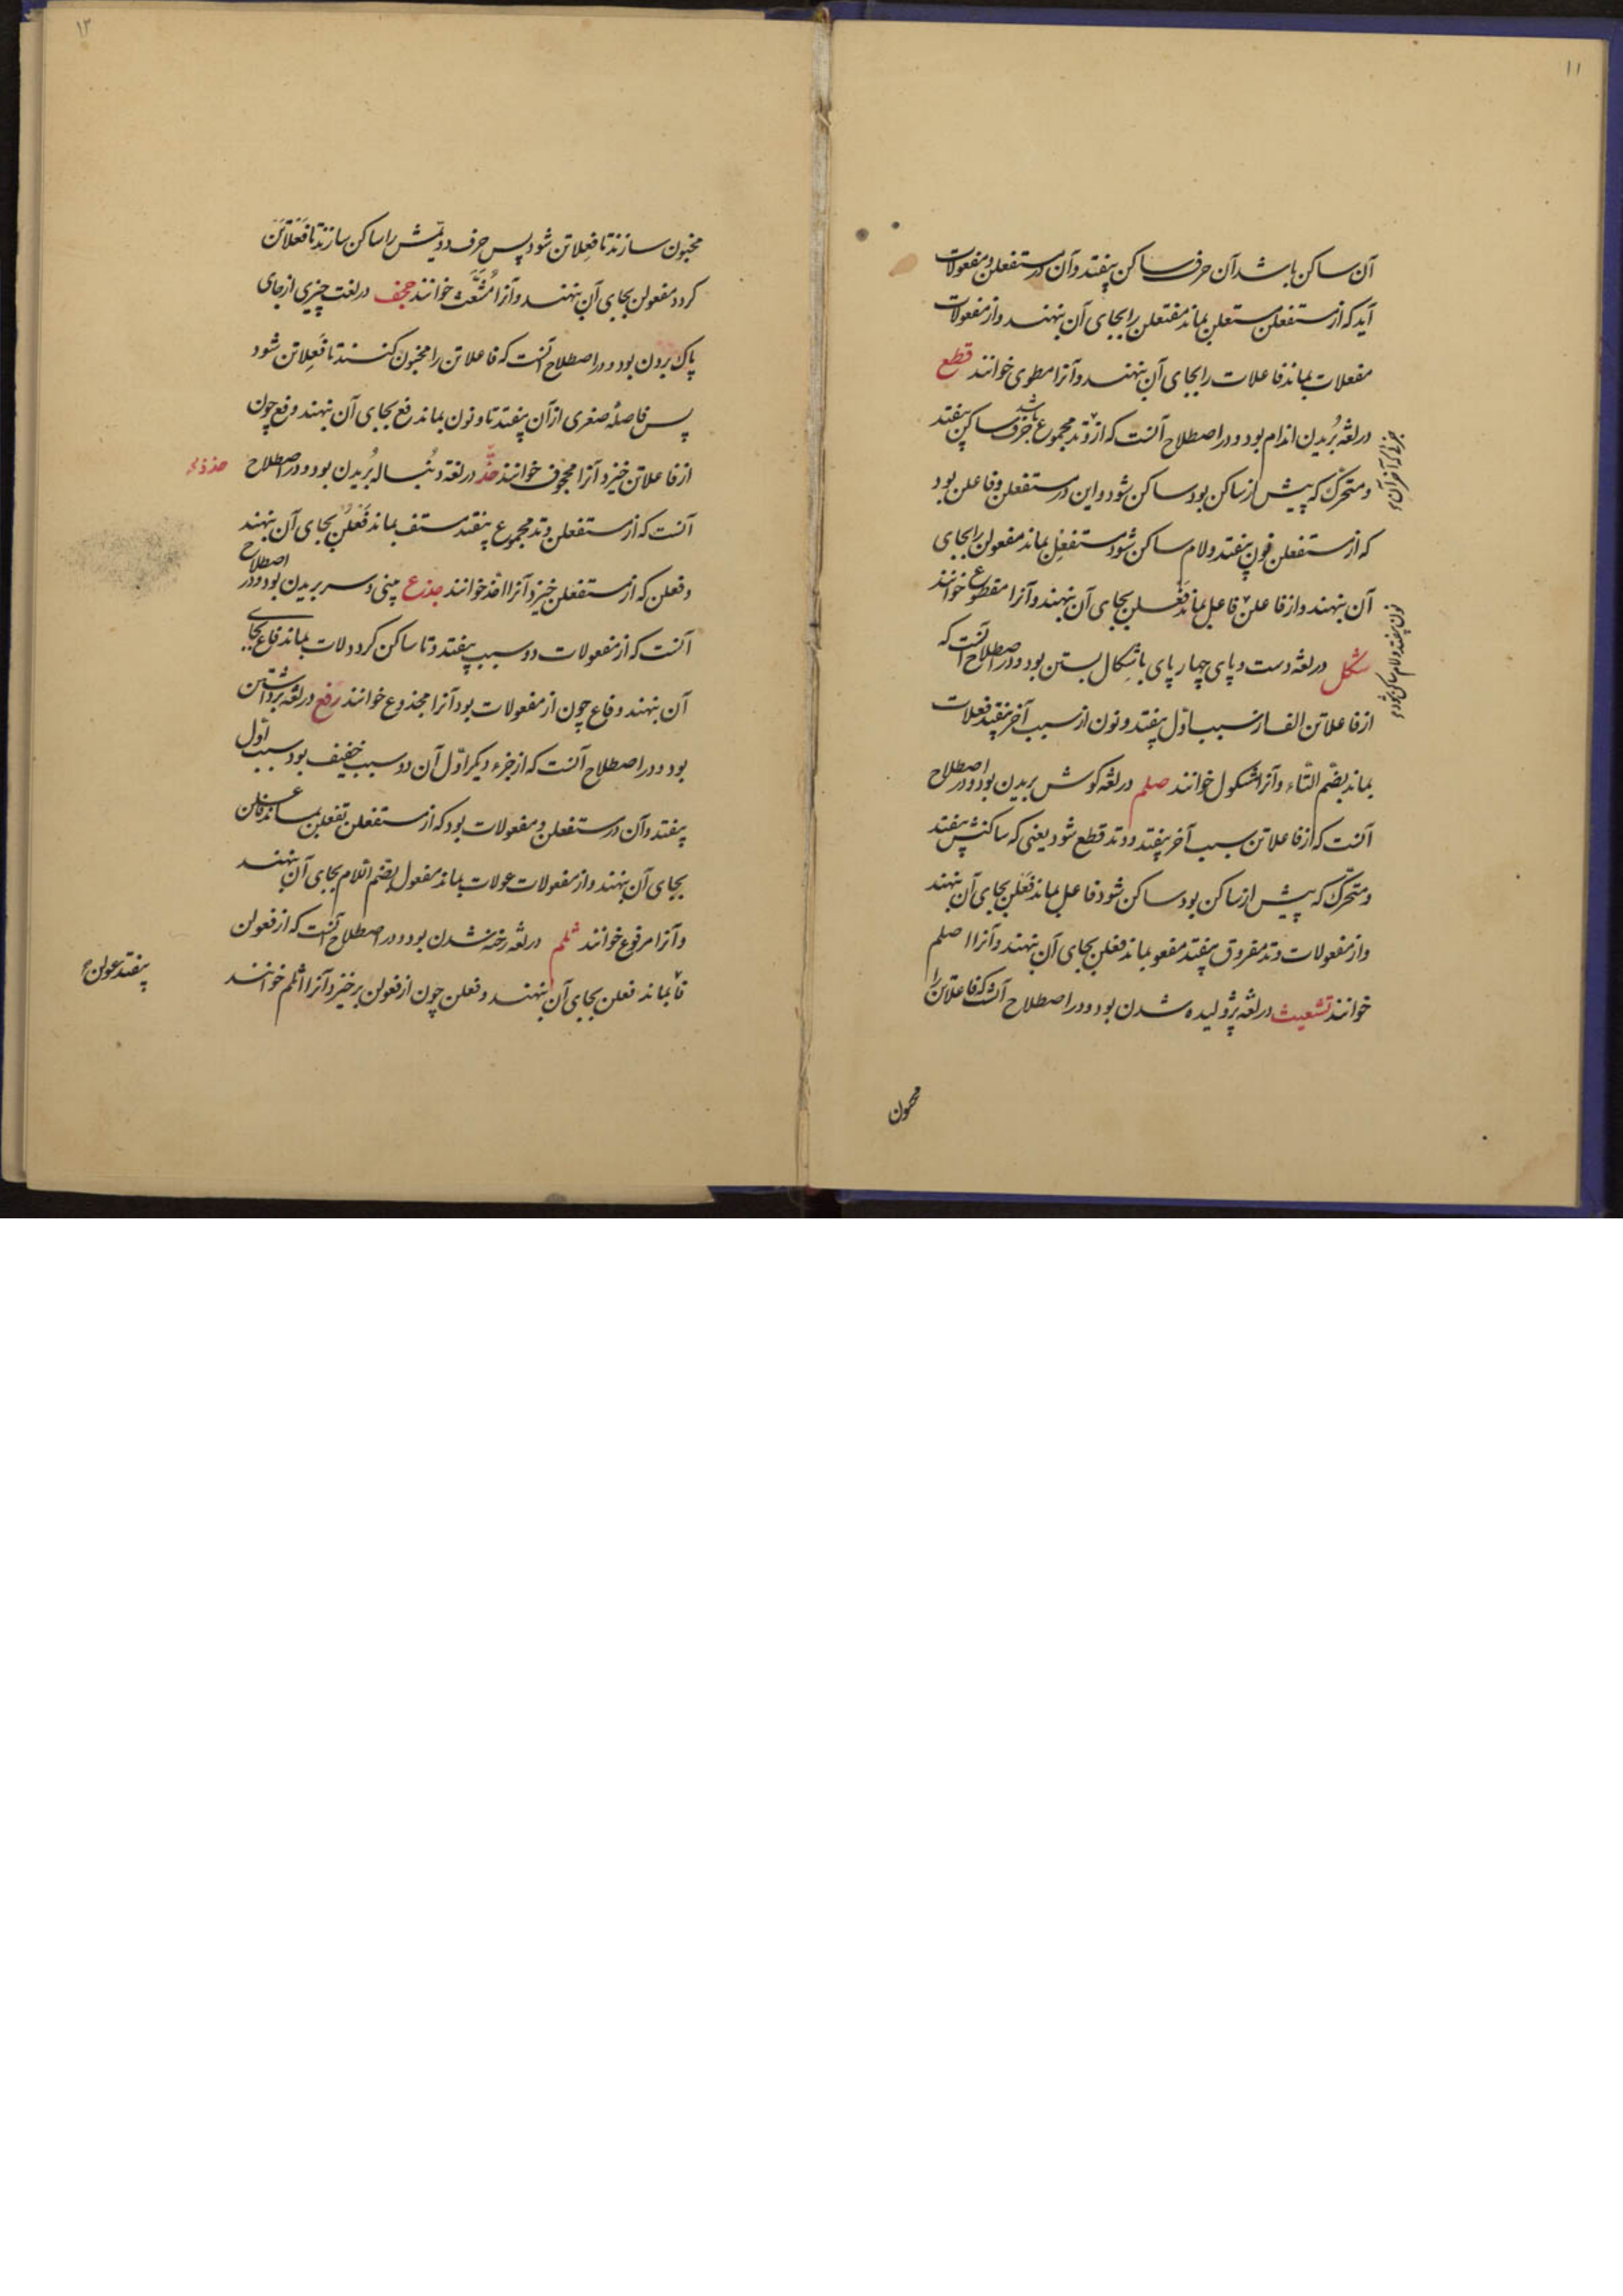 ۱۱
آن ساکن باشد آن حرف ساکن بیفتد وآن در مستفعلن ومفعولات
آید که از مستفعلن مستعلن بماند مفتعلن را بجای آن بنهند واز مفعولات
مفعلات بماند فاعلات را بجای آن بنهند وآنرا مطوی خوانند قطع
در لغة بُریدن اندام بود ودر اصطلاح آنست که از وتد مجموع باشد حرف ساکن بیفتد
جزئی که آخر آن
ومتحرّک که پیش از ساکن بود ساکن شود واین در مستفعلن وفاعلن بود
که از مستفعلن نون بیفتد ولام ساکن شود مستفعل بماند مفعولن را بجای
آن بنهند واز فاعلن فاعل بماند فعلن بجای آن بنهند وآنرا مقطوع خوانند
نون بیفتد ولام ساکن شود
شکل در لغة دست وپای چهارپای باشکال بستن بود ودر اصطلاح آنست که
از فاعلاتن الف از سبب اوّل بیفتد ونون از سبب آخر بیفتد فعلات
بماند بضمّ التّاء وآنرا مشکول خوانند صلم در لغة کوش بریدن بود ودر اصطلاح
آنست که از فاعلاتن سبب آخر بیفتد ووتد قطع شود یعنی که ساکنش بیفتد
ومتحرّک که پیش از ساکن بود ساکن شود فاعل بماند فعلن بجای آن بنهند
واز مفعولات وتد مفروق بیفتد مفعو بماند فعلن بجای آن بنهند وآنرا اصلم
خوانند تشعیث در لغة پژولیده شدن بود ودر اصطلاح آنست که فاعلاتن را
مخبون
۱۲
مخبون سازند تا فعِلاتن شود پس حرف دویمش را ساکن سازند تا فَعْلاتن
کردد مفعولن بجای آن بنهند وآنرا مُشَعَّث خوانند جحف در لغت چیزی از جای
پاک بردن بود ودر اصطلاح آنست که فاعلاتن را مخبون کنند تا فَعِلاتن شود
پس فاصلهٔ صغری از آن بیفتد تا ونون بماند رفع بجای آن بنهند ورفع چون
از فاعلاتن خیزد آنرا مجحوف خوانند حذّ در لغة دنبال بُریدن بود ودر اصطلاح
حذذ
آنست که از مستفعلن وتد مجموع بیفتد مستف بماند فَعْلُن بجای آن بنهند
وفعلن که از مستفعلن خیزد آنرا احذ خوانند جدع بینی وسر بریدن بود ودر اصطلاح
آنست که از مفعولات دو سبب بیفتد وتا ساکن کردد لات بماند فاع بجای
آن بنهند وفاع چون از مفعولات بود آنرا مجدوع خوانند رفع در لغة برداشتن
بود ودر اصطلاح آنست که از جزء دیکر اوّل آن دو سبب خفیف بود سبب اوّل
بیفتد وآن در مستفعلن ومفعولات بود که از مستفعلن تفعلن بماند فاعلن
بجای آن بنهند واز مفعولات عولات بماند مفعول بضمّ اللام بجای آن بنهند
وآنرا مرفوع خوانند ثلم در لغة رخنه شدن بود ودر اصطلاح آنست که از فعولن
فا بماند فعلن بجای آن بنهند وفعلن چون از فعولن برخیزد آنرا اثلم خوانند
بیفتد عولن